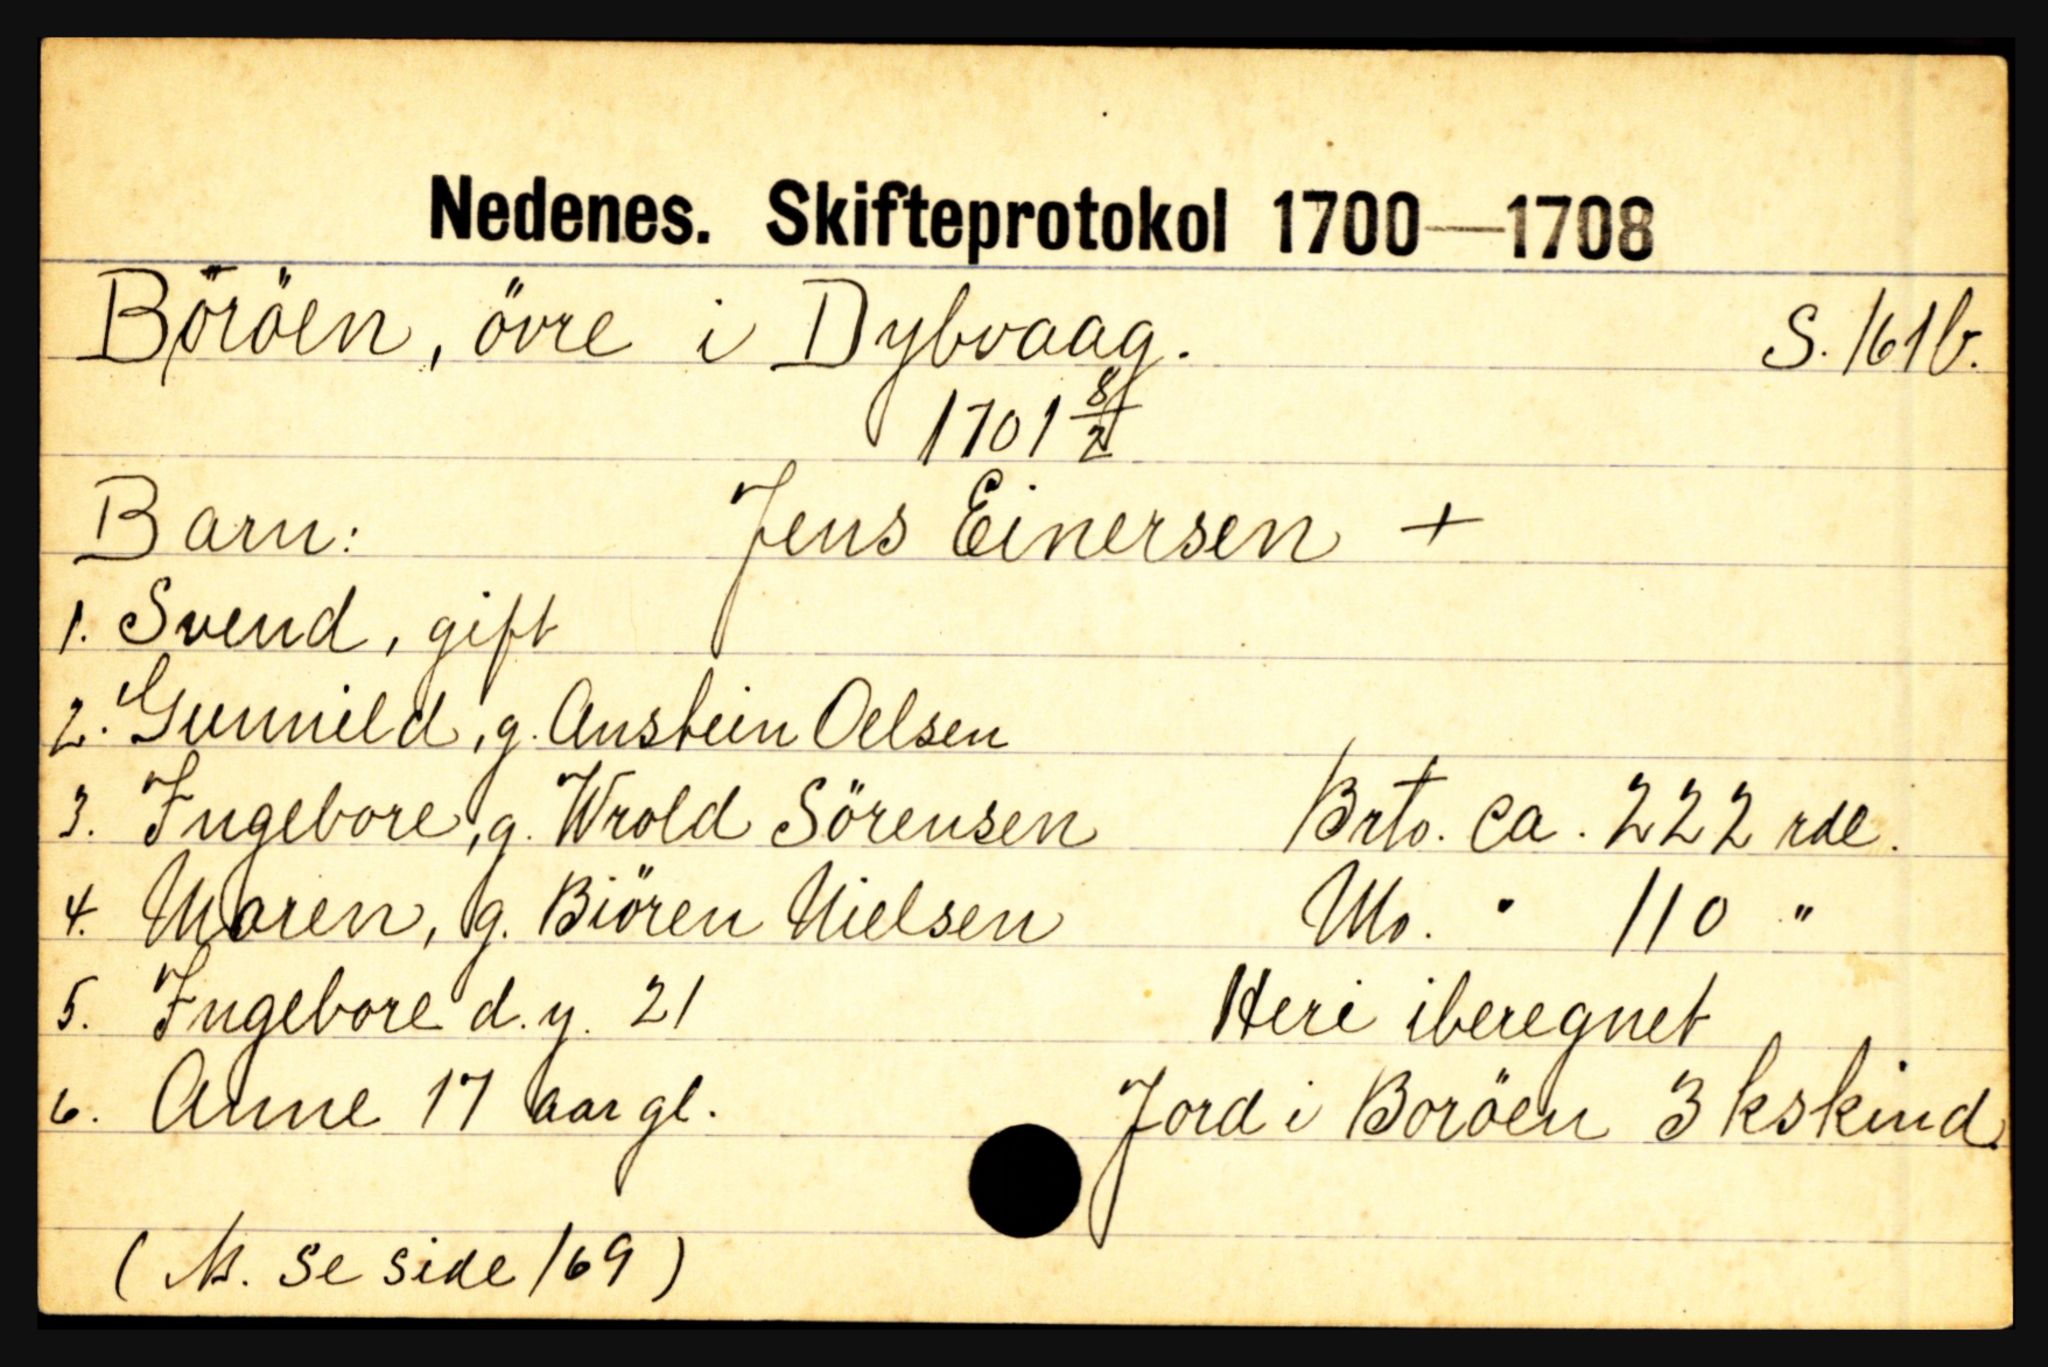 Nedenes. Skifteprotokol 1700—1708
Böröen, övre i Dybvaag. S. 161b.
1701 8/2
Barn: Jens Einersen +
1. Svend, gift
2. Gunnild, g. Anstein Oelsen
3. Ingebore, g. Wrold Sörensen Brto. ca. 222 rdl.
4. Maren, g. Biören Nielsen No. " 110 "
5. Ingebore d.y. 21 Heri iberegnet
6. Anne 17 aar gl. Jord i Boröen 3 kskind.
(N.B. se side 169)